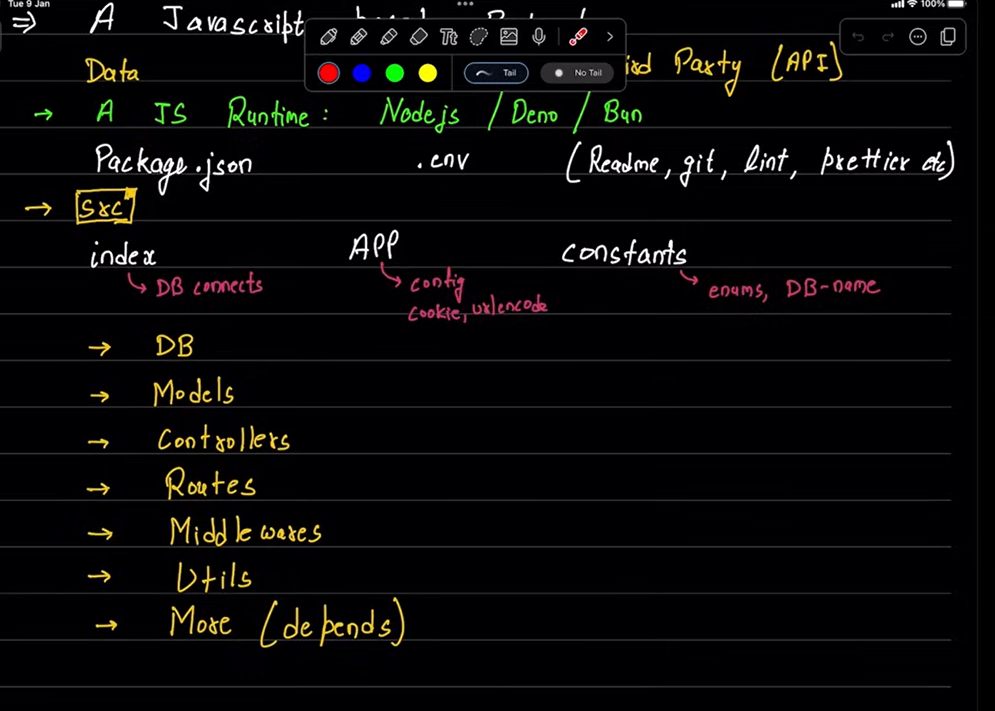 Tue 9 Jan 100%
⇒ A Javascript
Tt
Data Party (API)
Tail No Tail
→ A JS Runtime: Nodejs / Deno / Bun
Package.json .env (Readme, git, lint, prettier etc)
→ src
index APP constants
↳ DB connects ↳ config ↳ enums, DB-name
cookie, urlencode
→ DB
→ Models
→ Controllers
→ Routes
→ Middlewares
→ Utils
→ More (depends)